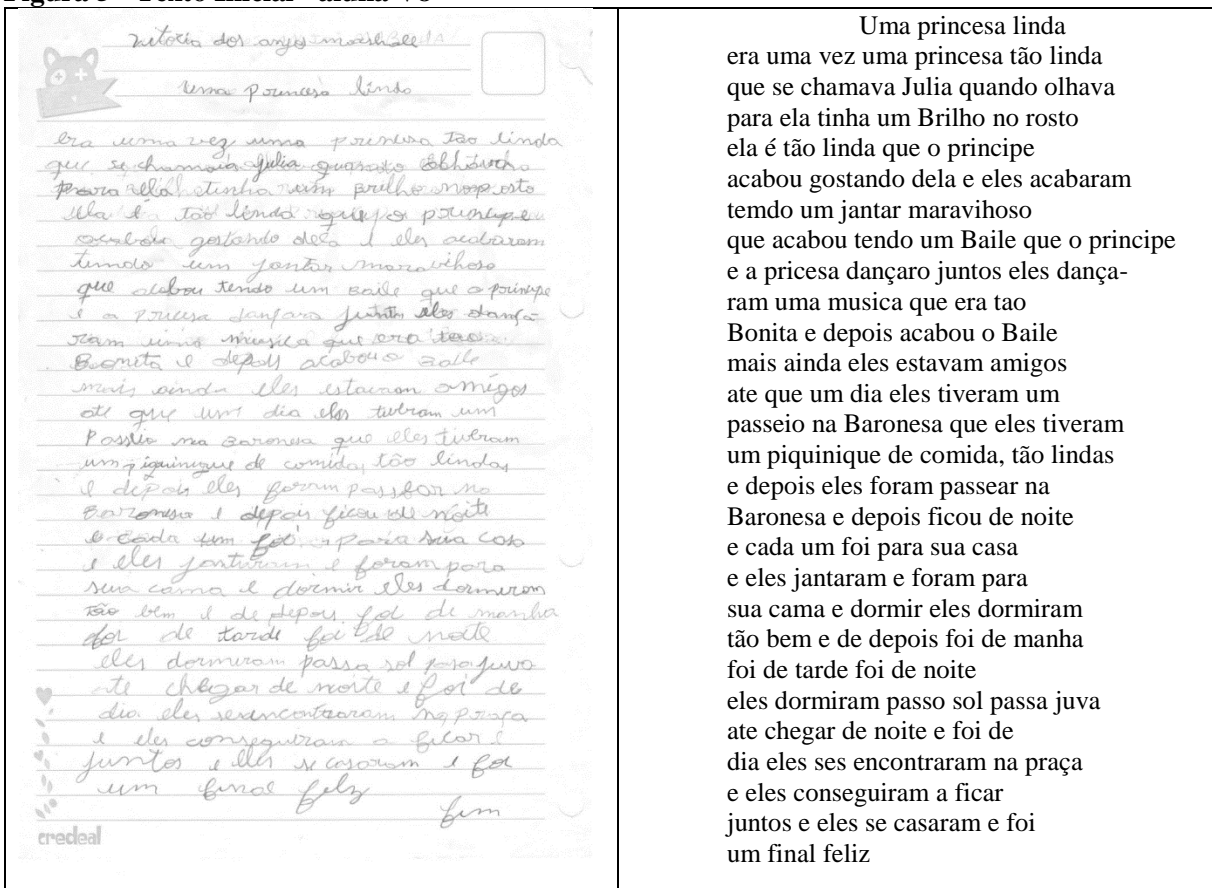 Figura 3 – Texto Inicial - aluna V8
dos anjos
Uma princesa linda
era uma vez uma princesa tão linda
que se chamava Julia quando
para ela tinha um Brilho no rosto
ela é tão linda que o principe
acabou gostando dela e eles acabaram
temdo um jantar maravihoso
que acabou tendo um Baile que o principe
e a pricesa dançaro juntos eles dança-
ram uma musica que era tao
Bonita e depois acabou o Baile
mais ainda eles estavam amigos
ate que um dia eles tiveram um
Passeio na Baronesa que eles tiveram
um piquinique de comida, tão lindas
e depois eles foram passear na
Baronesa e depois ficou de noite
e cada um foi para sua casa
e eles jantaram e foram para
sua cama e dormir eles dormiram
tão bem e de depois foi de manha
foi de tarde foi de noite
eles dormiram passa sol passa juva
ate chegar de noite e foi de
dia eles encontraram na praça
e eles conseguiram a ficar
juntos e eles se casaram e foi
um final feliz
fim
credeal
Uma princesa linda
era uma vez uma princesa tão linda
que se chamava Julia quando olhava
para ela tinha um Brilho no rosto
ela é tão linda que o principe
acabou gostando dela e eles acabaram
temdo um jantar maravihoso
que acabou tendo um Baile que o principe
e a pricesa dançaro juntos eles dança-
ram uma musica que era tao
Bonita e depois acabou o Baile
mais ainda eles estavam amigos
ate que um dia eles tiveram um
passeio na Baronesa que eles tiveram
um piquinique de comida, tão lindas
e depois eles foram passear na
Baronesa e depois ficou de noite
e cada um foi para sua casa
e eles jantaram e foram para
sua cama e dormir eles dormiram
tão bem e de depois foi de manha
foi de tarde foi de noite
eles dormiram passo sol passa juva
ate chegar de noite e foi de
dia eles ses encontraram na praça
e eles conseguiram a ficar
juntos e eles se casaram e foi
um final feliz